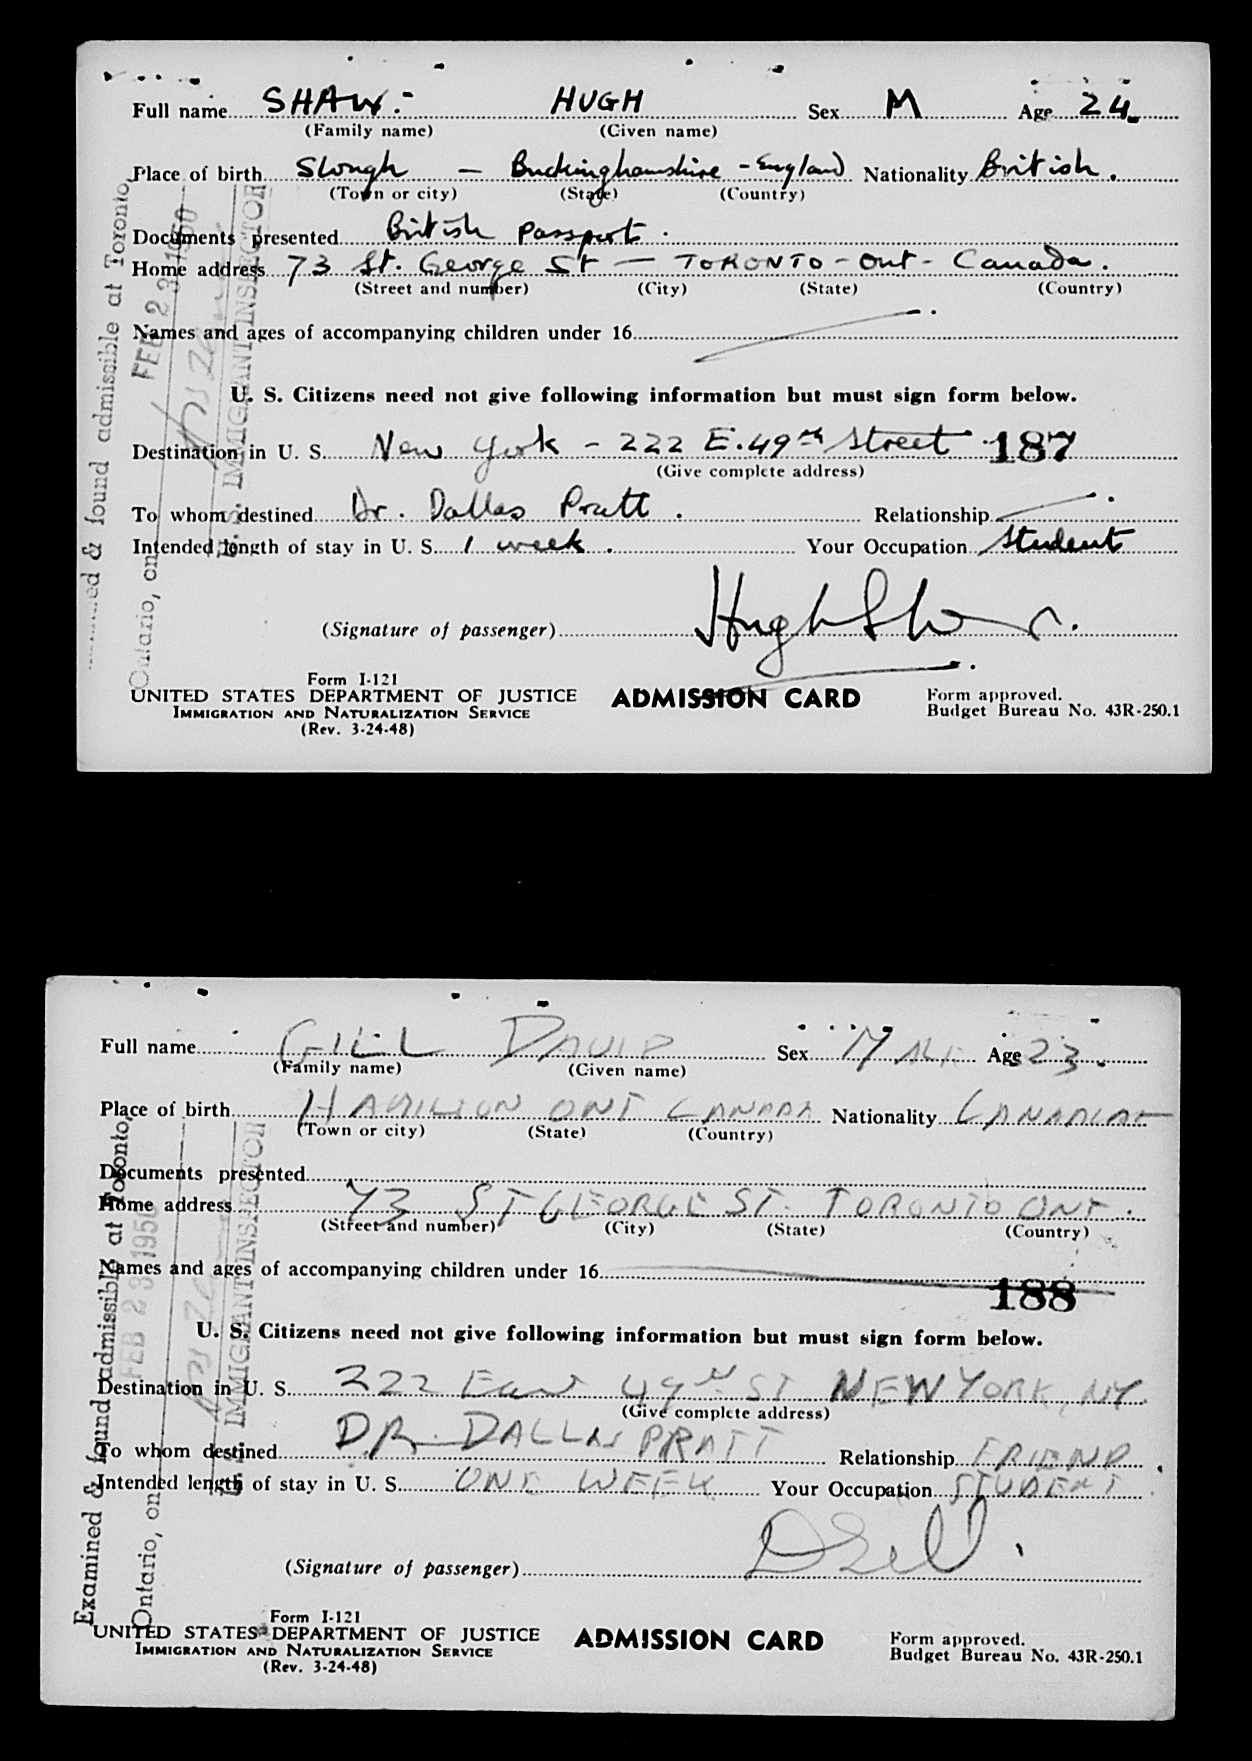 Full name SHAW. HUGH Sex M Age 24.
(Family name) (Given name)
Place of birth Slough — Buckinghamshire - England Nationality British.
(Town or city) (State) (Country)
Documents presented British Passport.
Home address 73 St. George St — TORONTO - Ont - Canada.
(Street and number) (City) (State) (Country)
Names and ages of accompanying children under 16
U. S. Citizens need not give following information but must sign form below.
Destination in U. S. New York - 222 E. 49th Street 187
(Give complete address)
To whom destined Dr. Dallas Pratt. Relationship
Intended length of stay in U. S. 1 week. Your Occupation Student
(Signature of passenger) Hugh Shaw.
Form I-121
UNITED STATES DEPARTMENT OF JUSTICE ADMISSION CARD Form approved.
IMMIGRATION AND NATURALIZATION SERVICE Budget Bureau No. 43R-250.1
(Rev. 3-24-48)
& found admissible at Toronto,
Ontario, on FEB 23 1950
U. S. IMMIGRANT INSPECTOR
Full name GILL DAVID Sex MALE Age 23.
(Family name) (Given name)
Place of birth HAMILTON ONT CANADA Nationality CANADIAN
(Town or city) (State) (Country)
Documents presented
Home address 73 ST GEORGE ST. TORONTO ONT.
(Street and number) (City) (State) (Country)
Names and ages of accompanying children under 16
188
U. S. Citizens need not give following information but must sign form below.
Destination in U. S. 222 East 49th ST NEW YORK, NY.
(Give complete address)
To whom destined DR. DALLAS PRATT Relationship FRIEND.
Intended length of stay in U. S. ONE WEEK Your Occupation STUDENT.
(Signature of passenger) D Gill.
Form I-121
UNITED STATES DEPARTMENT OF JUSTICE ADMISSION CARD Form approved.
IMMIGRATION AND NATURALIZATION SERVICE Budget Bureau No. 43R-250.1
(Rev. 3-24-48)
Examined & found admissible at Toronto,
Ontario, on FEB 23 1950
U. S. IMMIGRANT INSPECTOR